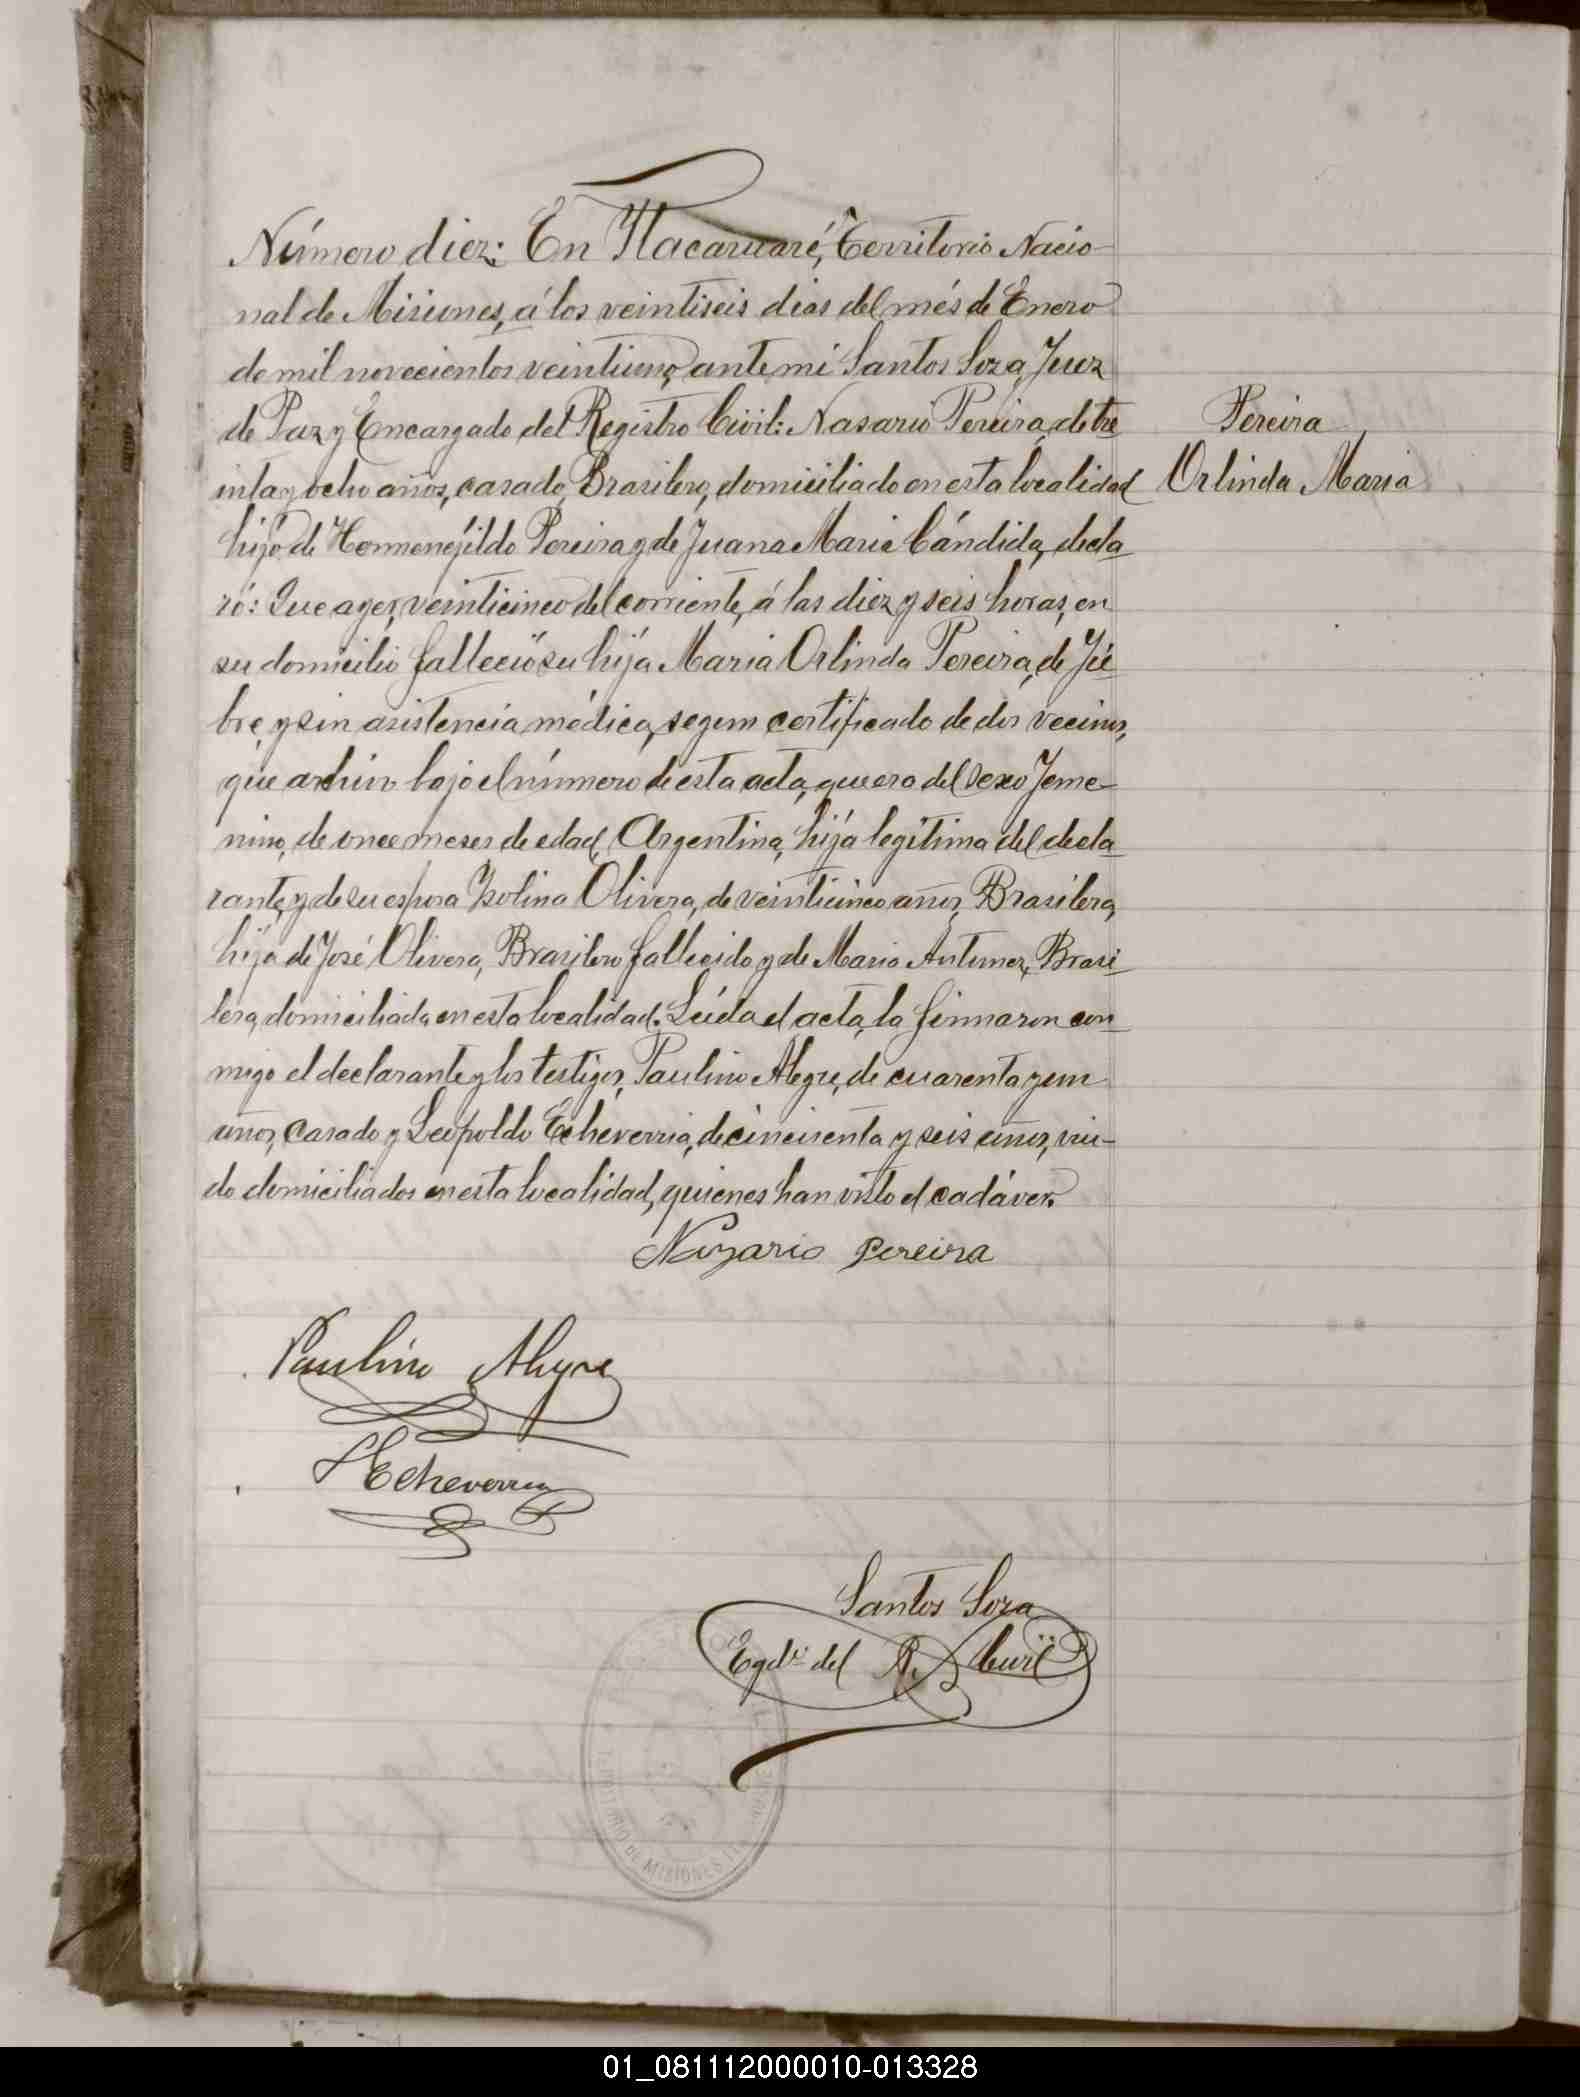 Número diez: En Itacaruaré, Territorio Nacio-
nal de Misiones, á los veintiseis dias del més de Enero
de mil novecientos veintiuno, ante mi Santos Soza, Juez
de Paz y Encargado del Registro Civil: Nasario Pereira, de tre
inta y ocho años, casado, Brasilero, domiciliado en esta localidad
hijo de Hermenejildo Pereira y de Juana Maria Cándida, decla
ró: Que ayer, veinticinco del corriente, á las diez y seis horas, en
su domicilio falleció su hija Maria Orlinda Pereira, de Fie
bre, y sin asistencia médica, segun certificado de dos vecinos,
que archivo bajo el número de esta acta, que era del sexo Feme-
nino, de once meses de edad, Argentina, hija legítima del decla
rante, y de su esposa Isolina Olivera, de veinticinco años, Brasilera,
hija de José Olivera, Brasilero fallecido y de Maria Antunez, Brasi
lera, domiciliada en esta localidad. Leída el acta, la firmaron con
migo el declarante y los testigos, Paulino Alegre, de cuarenta y un
años, casado y Leopoldo Echeverria, de cincuenta y seis años, viu-
do domiciliados en esta localidad, quienes han visto el cadáver.
Pereira
Orlinda Maria
Nazario Pereira
Paulino Alegre
LEcheverria
Santos Soza
Egdo. del R. Civil
TERRITORIO DE MISIONES
01_081112000010-013328